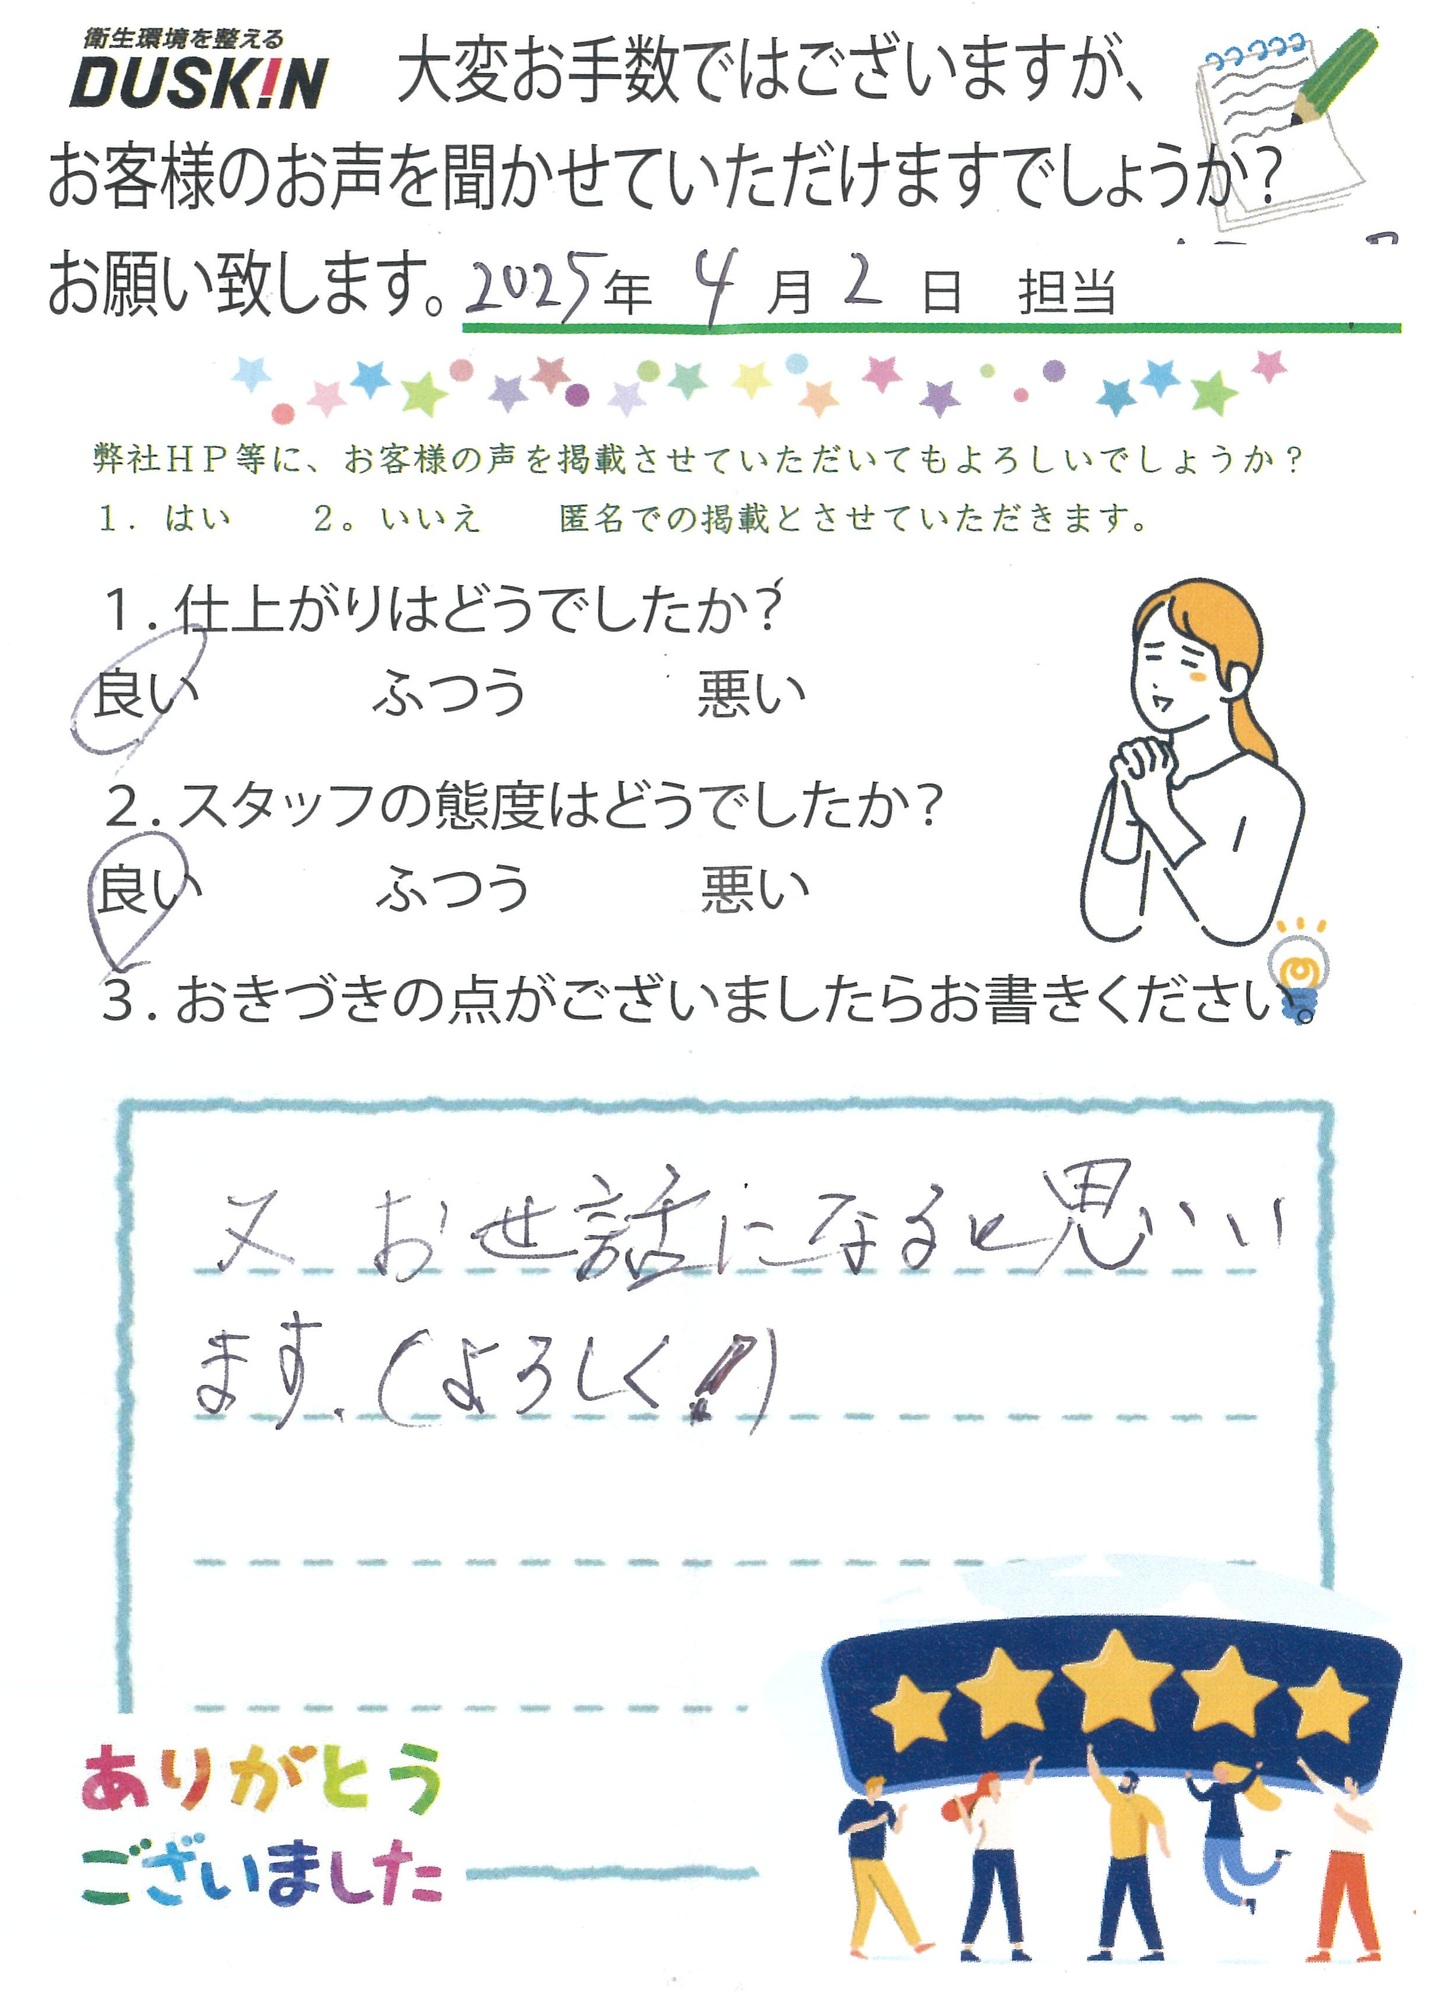 衛生環境を整える
DUSKIN 大変お手数ではございますが、
お客様のお声を聞かせていただけますでしょうか？
お願い致します。2025年 4月 2日 担当
弊社ＨＰ等に、お客様の声を掲載させていただいてもよろしいでしょうか？
１．はい ２。いいえ 匿名での掲載とさせていただきます。
１．仕上がりはどうでしたか？
良い ふつう 悪い
２．スタッフの態度はどうでしたか？
良い ふつう 悪い
３．おきづきの点がございましたらお書きください。
又 お世話になると思いい
ます.（よろしく!!）
ありがとう
ございました